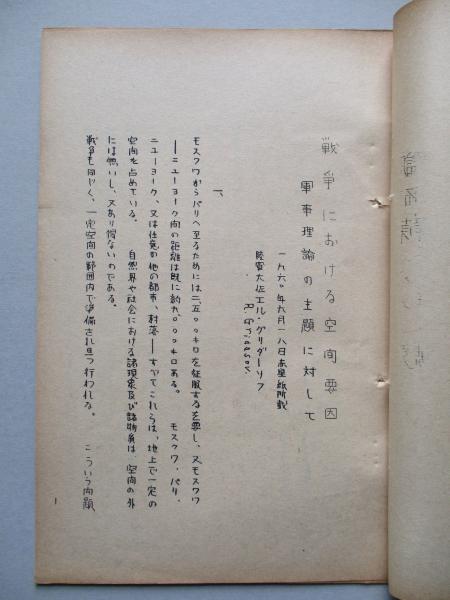 戦争における空間要因
軍事理論の主題に対して
一九六〇年九月一八日赤星紙所載
陸軍大佐エル・グリダーソフ
R. Gridasov.
一、
モスクワからパリへ至るためには二、五〇〇キロを征服するを要し、又モスクワ
――ニューヨーク間の距離は既に約九、〇〇〇キロある。 モスクワ、パリ、
ニューヨーク、又は任意の他の都市、村落――すべてこれらは、地上で一定の
空間を占めている。 自然界や社会における諸現象及び諸物質は 空間の外
には無いし、又あり得ないのである。
戦争も同じく、一定空間の範囲内で準備され且つ行われる。 こういう問題
1